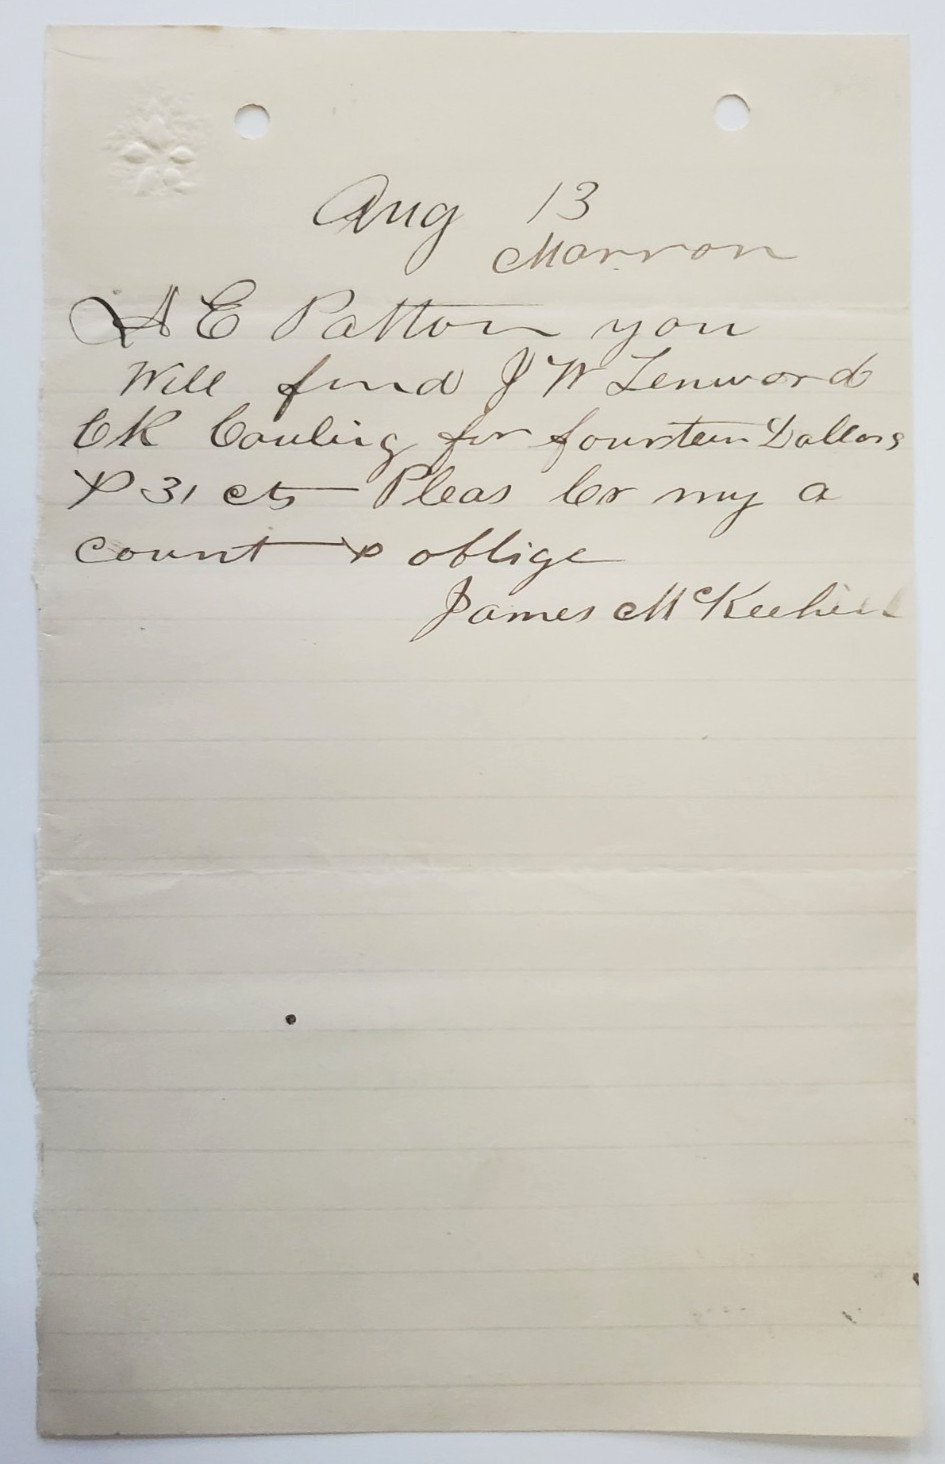 Aug 13
Marron
A E Patton you
Will find J W Lenword
CK Couling for fourteen Dollars
& 31 cts Pleas Cr my a
count & oblige
James McKeehen